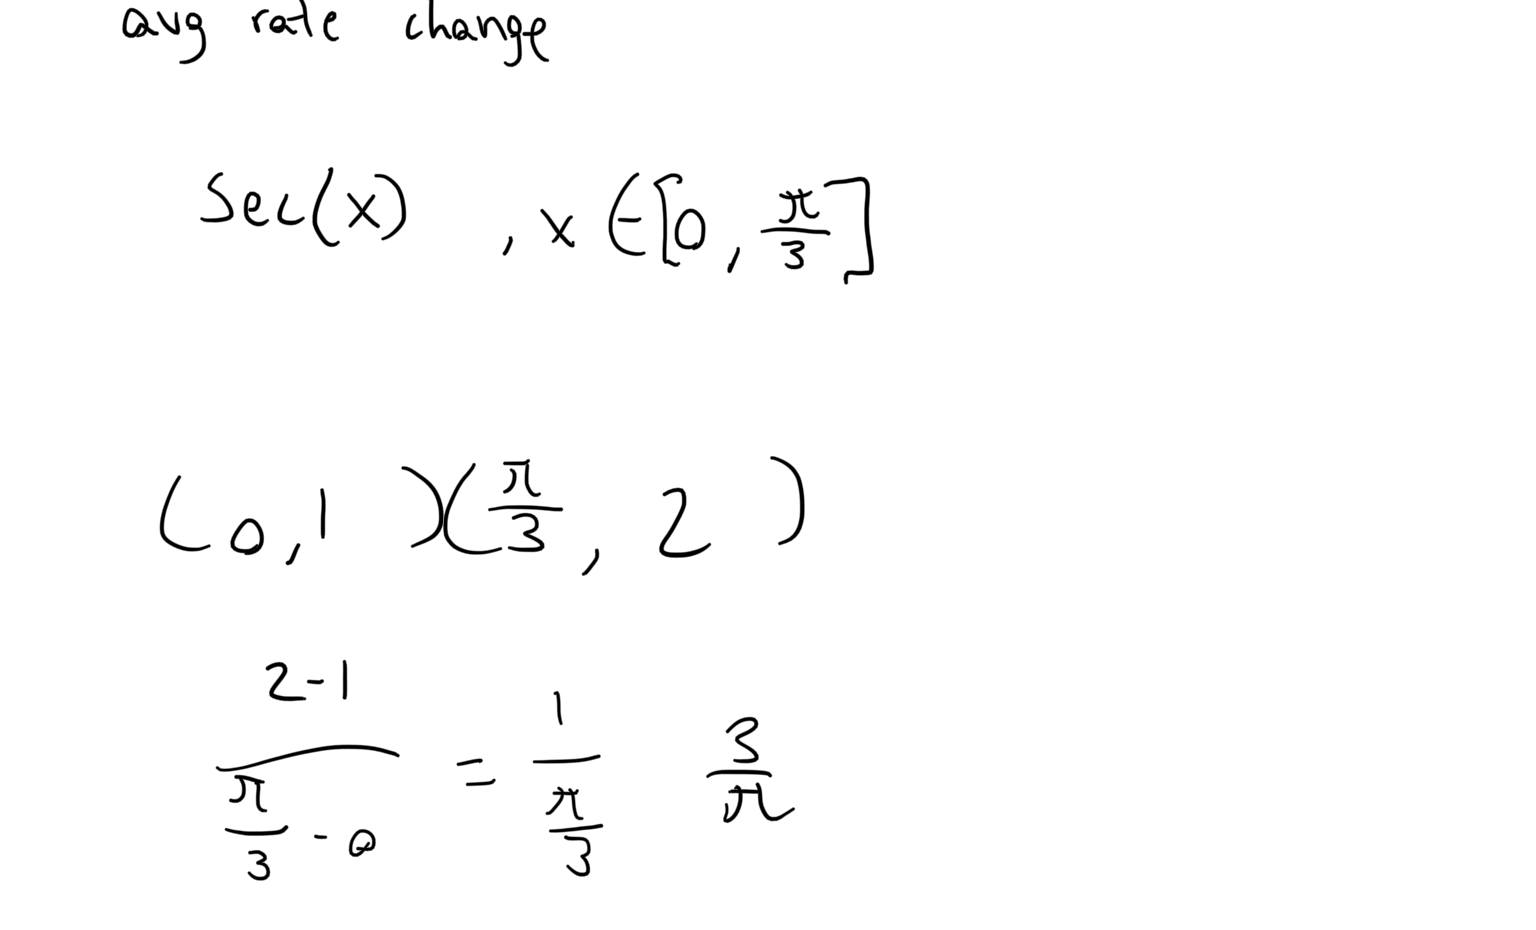 avg rate change
Sec(x) , x ∈ [0, π/3]
(0, 1 )(π/3, 2 )
(2-1)/(π/3 - 0) = 1/(π/3) 3/π